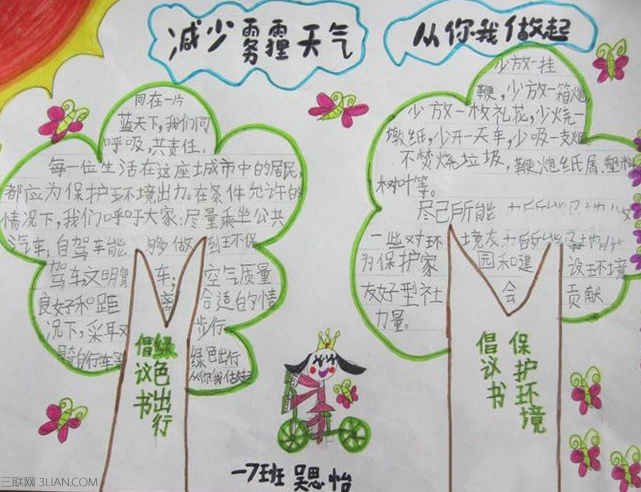 减少雾霾天气
从你我做起
同在一片
蓝天下,我们同
呼吸,共责任。
每一位生活在这座城市中的居民,
都应为保护环境出力。在条件允许的
情况下,我们呼吁大家:尽量乘坐公共
汽车,自驾车能够做到环保
驾车文明驾车;空气质量
良好和距离合适的情
况下,采取步行
自行车等绿色出行
从你我做起
绿色出行
倡议书
少放一挂
鞭,少放一箱炮,
少放一枚礼花,少烧一
墩纸,少开一天车,少吸一支烟
不焚烧垃圾,鞭炮纸屑,塑料
树叶等。
尽己所能
一些对环境友
为保护家园和建设环境
友好型社会贡献
力量。
保护环境
倡议书
一7班 吴思怡
三联网 3LIAN.COM